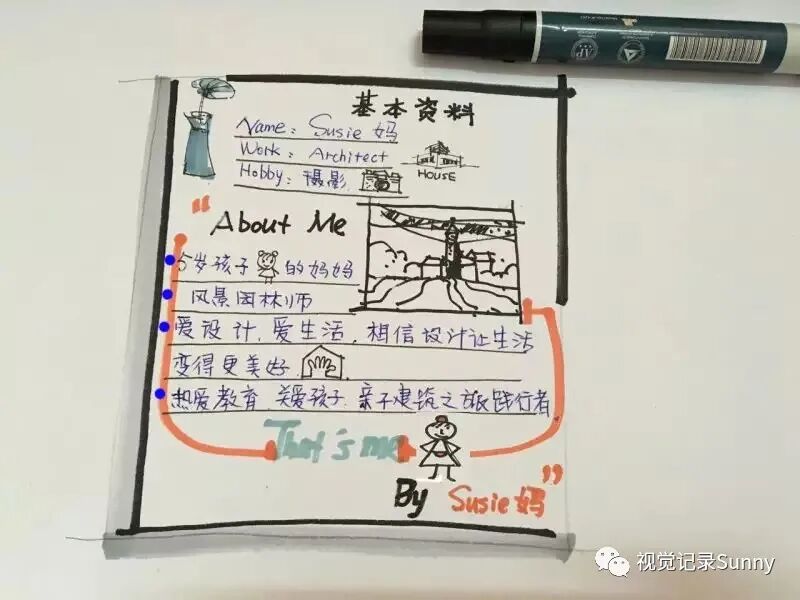 基本资料
Name: Susie 妈
Work: Architect
HOUSE
Hobby: 摄影
"About Me
5岁孩子 的妈妈
风景园林师
爱设计,爱生活,相信设计让生活
变得更美好
热爱教育 关爱孩子 亲子建筑之旅践行者
That's me
By Susie妈"
视觉记录Sunny